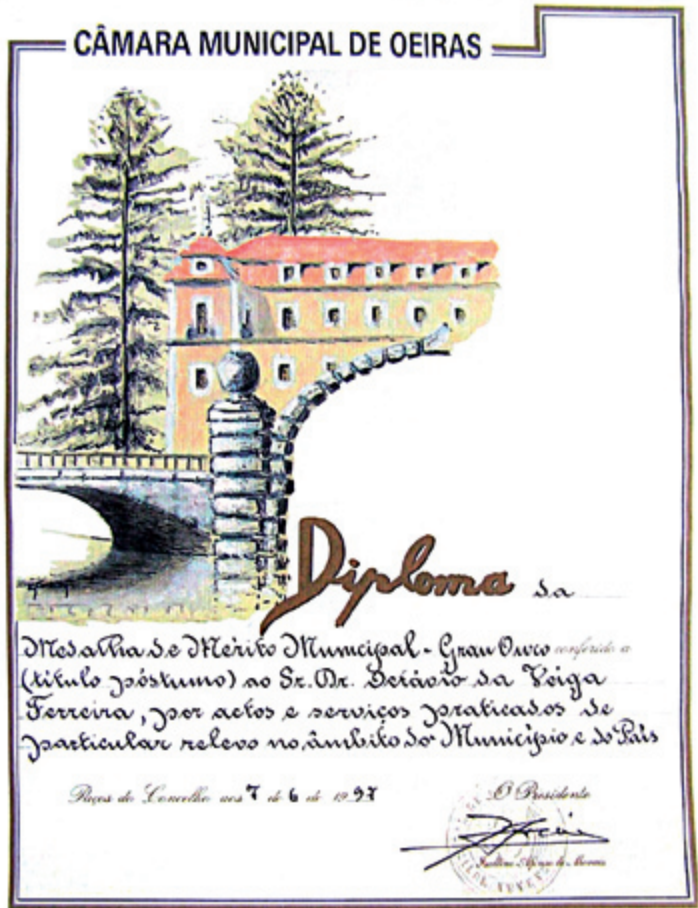 CÂMARA MUNICIPAL DE OEIRAS
Diploma da
Medalha de Mérito Municipal - Grau Ouro conferido a
(título póstumo) ao Sr. Dr. Octávio da Veiga
Ferreira, por actos e serviços praticados de
particular relevo no âmbito do Município e do País
Paços do Concelho aos 7 de 6 de 1997
O Presidente
Isaltino Afonso de Morais